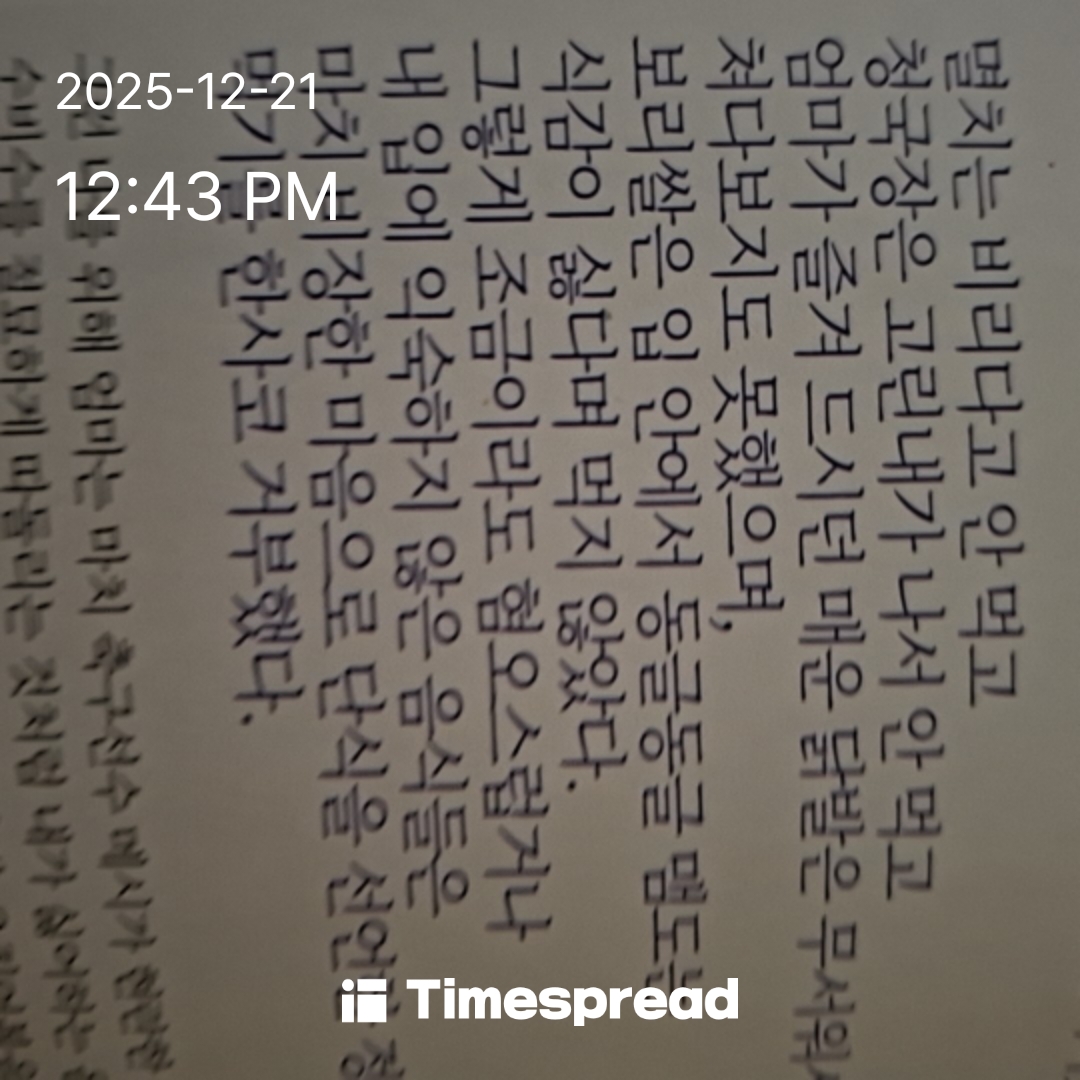 2025-12-21
12:43 PM
멸치는 비리다고 안 먹고
청국장은 고린내가 나서 안 먹고
엄마가 즐겨 드시던 매운 닭발은 무서워
쳐다보지도 못했으며,
보리쌀은 입 안에서 동글동글 맴도는
식감이 싫다며 먹지 않았다.
그렇게 조금이라도 혐오스럽거나
내 입에 익숙하지 않은 음식들은
마치 비장한 마음으로 단식을 선언
먹기를 한사코 거부했다.
나를 위해 엄마는 마치 축구선수 메시가 현란한
필요하게 따돌리는 것처럼 내가 싫어하는
Timespread